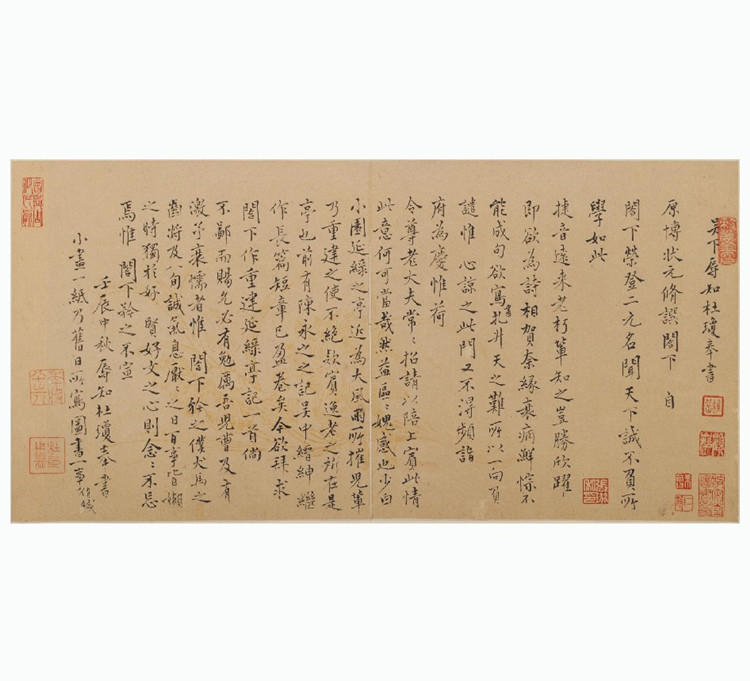 吴下辱知杜瓊奉書
原博狀元脩譔閣下自
閣下榮登二元名聞天下誠不負所
學如此
捷音遠來老朽輩知之豈勝欣躍
即欲為詩相賀奈緣衰病鮮悰不
能成句欲寫書札升天之難所以一向負
譴惟心諒之此門又不得頻詣
府為慶惟荷
令尊老大夫常〻招請以陪上賓此情
此意何可當哉然益區〻媿感也少白
小園延綠之亭近為大風雨所摧兒輩
乃重建之使不絕欵賓逸老之所在是
亭也前有陳永之之記吴中縉紳繼
作長篇短章已盈卷矣今欲拜求
閣下作重建延綠亭記一首倘
不鄙而賜允必有勉厲吾兒曹及有
激于衰懦者惟閣下矜之僕犬馬之
齒將及八旬誠氣息厭〻之日百事皆嬾
之時獨於好賢好文之心則念〻不忘
焉惟閣下矜之不宣
壬辰中秋辱知杜瓊奉書
小畫一紙乃舊日所寫圖書一事